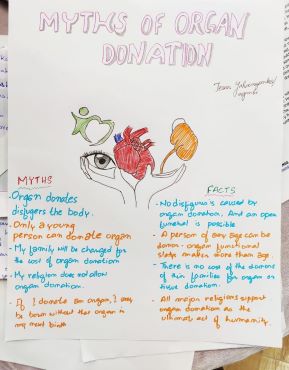 MYTHS OF ORGAN
DONATION
Team
MYTHS
Organ donates
disfugers the body.
Only a young
person can donate organ
My family will be charged for
the cost of organ donation
My religion does not allow
organ donation.
If I donate an organ, I may
be born without that organ in
my next birth
FACTS
No disfigure is caused by
organ donation. And an open
funeral is possible
A person of any age can be
donor. organ functional
matters more than age.
There is no cost of the donors
or their families for organ or
tissue donation.
All major religions support
organ donation as the
ultimate act of humanity.